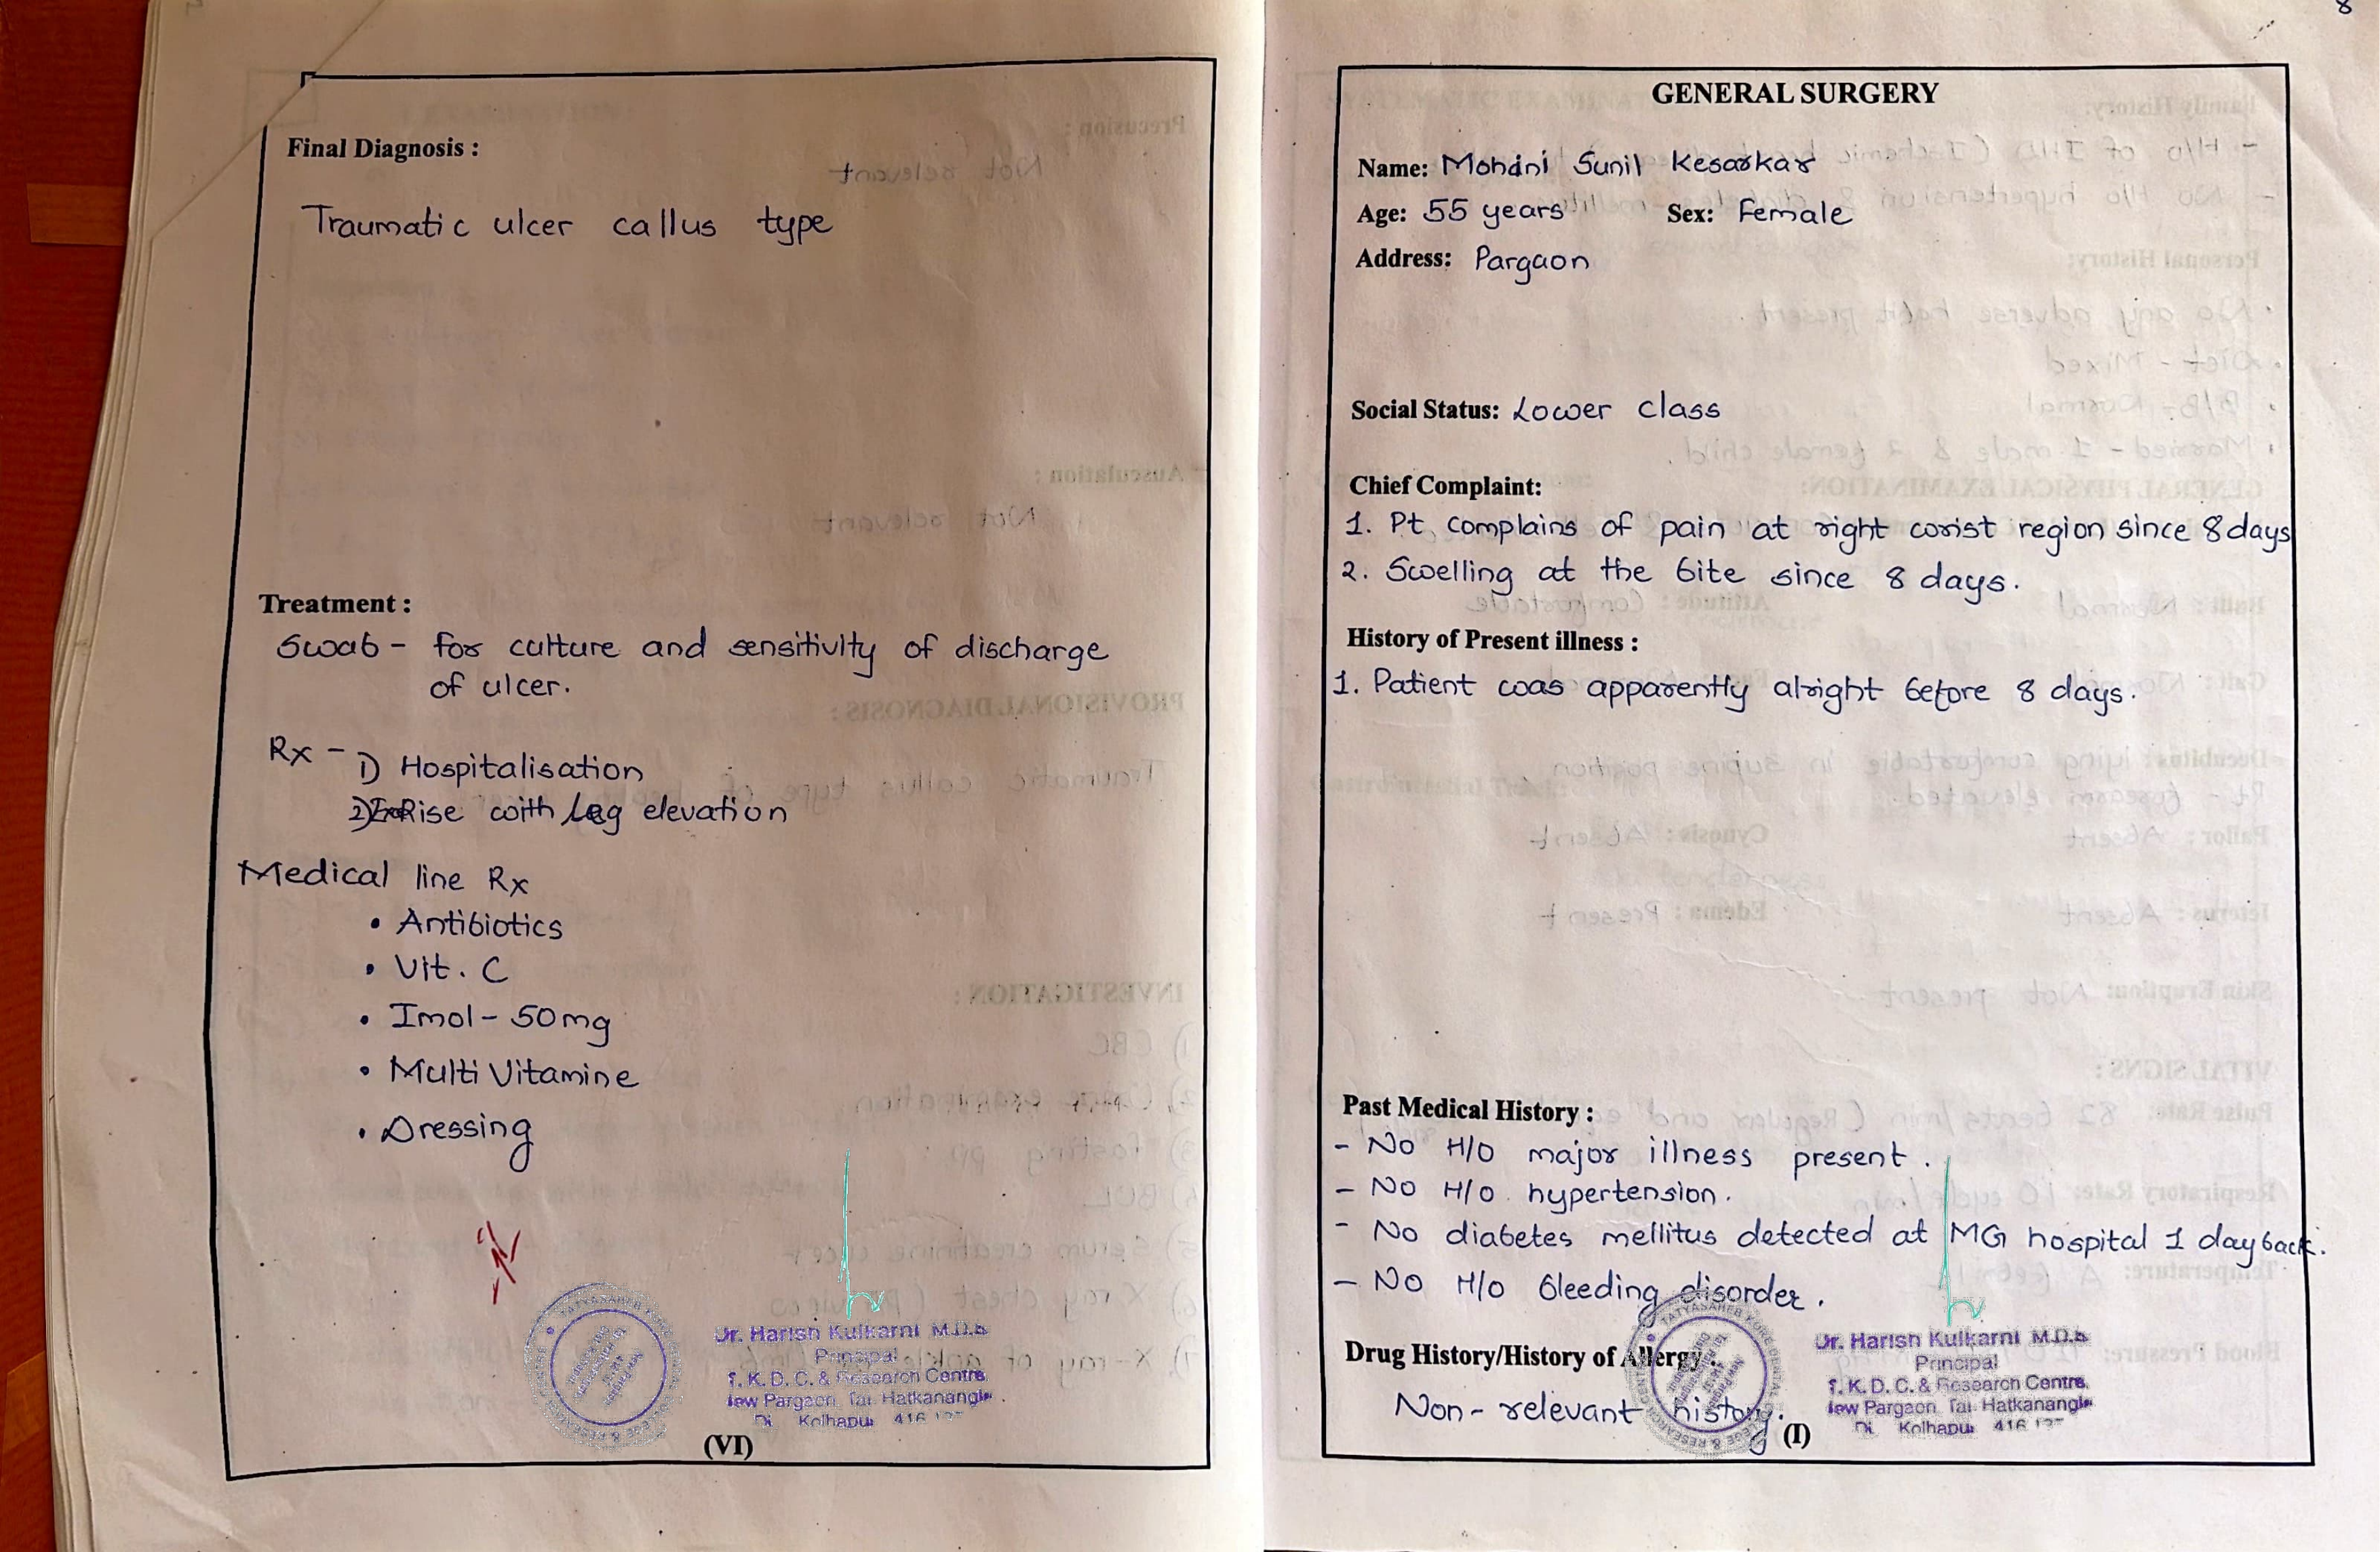 Final Diagnosis :
Traumatic ulcer callus type
Treatment :
Swab - for culture and sensitivity of discharge
of ulcer.
Rx - 1) Hospitalisation
2) Rise with Leg elevation
Medical line Rx
• Antibiotics
• Vit. C
• Imol - 50mg
• Multi Vitamine
• Dressing
Dr. Harish Kulkarni M.D.S
Principal
T. K. D. C. & Research Centre
New Pargaon, Tal. Hatkanangle
Di. Kolhapur 416
(VI)
8
GENERAL SURGERY
Name: Mohdni Sunil Kesarkar
Age: 55 years Sex: Female
Address: Pargaon
Social Status: Lower class
Chief Complaint:
1. Pt complains of pain at right wrist region since 8 days
2. Swelling at the site since 8 days.
History of Present illness :
1. Patient was apparently alright before 8 days.
Past Medical History :
- No H/O major illness present.
- No H/O hypertension.
- No diabetes mellitus detected at MG hospital 1 day back.
- No H/O bleeding disorder.
Drug History/History of Allergy :
Non-relevant history.
Dr. Harish Kulkarni M.D.S
Principal
T. K. D. C. & Research Centre
New Pargaon, Tal. Hatkanangle
Di. Kolhapur 416
(I)